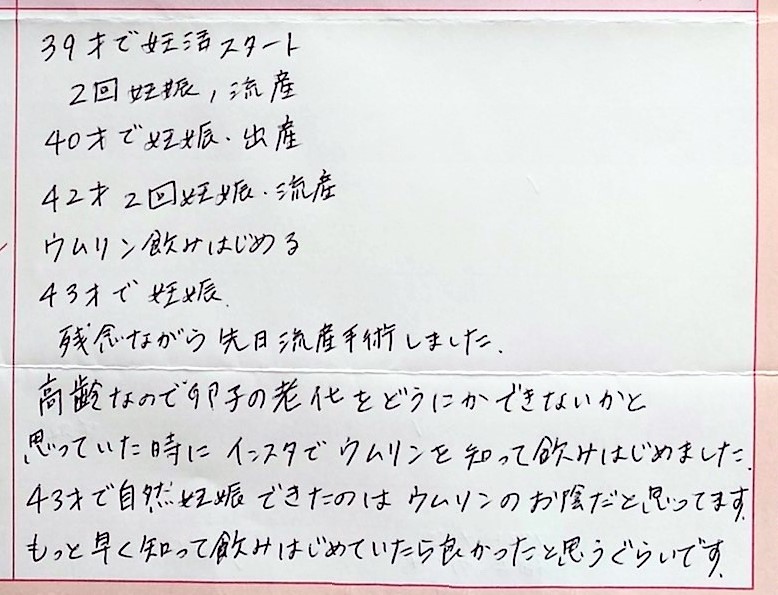 39才で妊活スタート
2回妊娠,流産
40才で妊娠・出産
42才 2回妊娠・流産
ウムリン飲みはじめる
43才で妊娠.
残念ながら先日流産手術しました.
高齢なので卵子の老化をどうにかできないかと
思っていた時にインスタでウムリンを知って飲みはじめました.
43才で自然妊娠できたのはウムリンのお陰だと思ってます.
もっと早く知って飲みはじめていたら良かったと思うぐらいです.